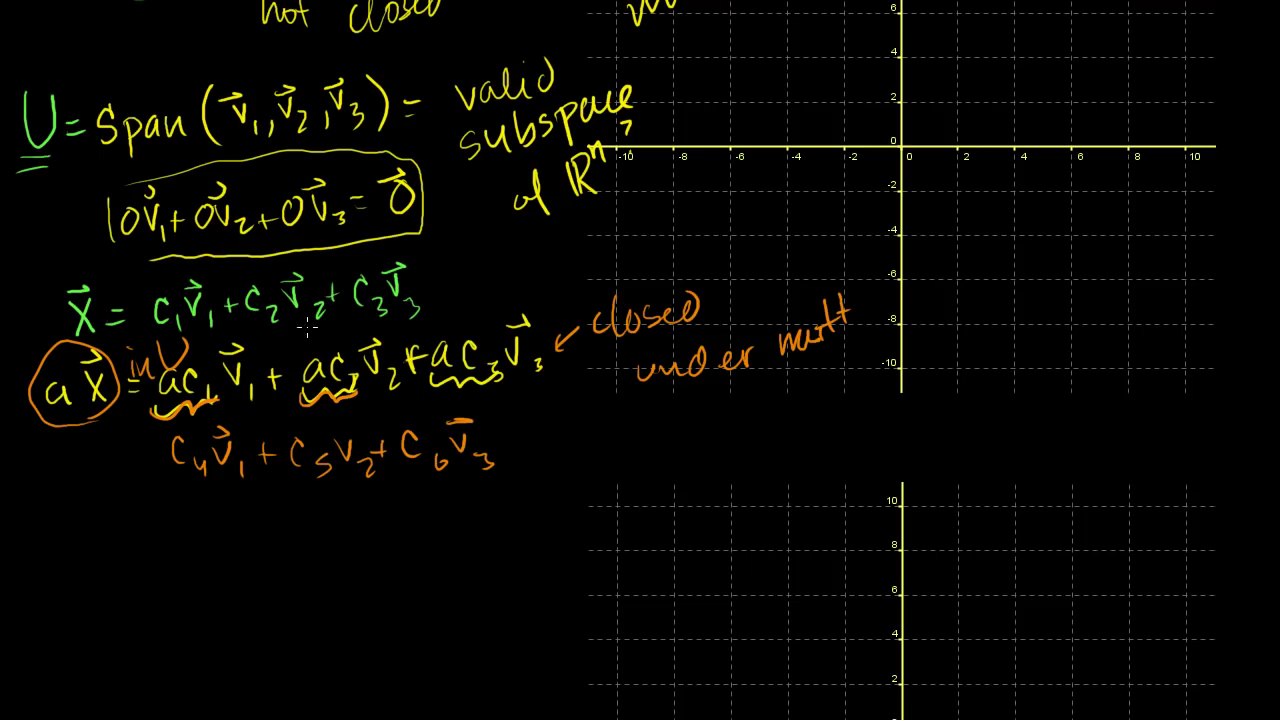 not closed
U = Span (v⃗₁, v⃗₂, v⃗₃) = valid
subspace
of ℝⁿ?
0v⃗₁ + 0v⃗₂ + 0v⃗₃ = 0⃗
x⃗ = c₁v⃗₁ + c₂v⃗₂ + c₃v⃗₃
in U
ax⃗ = ac₁v⃗₁ + ac₂v⃗₂ + ac₃v⃗₃ ← closed
under mult
c₄v⃗₁ + c₅v₂ + c₆v⃗₃
6
4
2
0
-10 -8 -6 -4 -2 0 2 4 6 8 10
-2
-4
-6
-8
-10
10
8
6
4
2